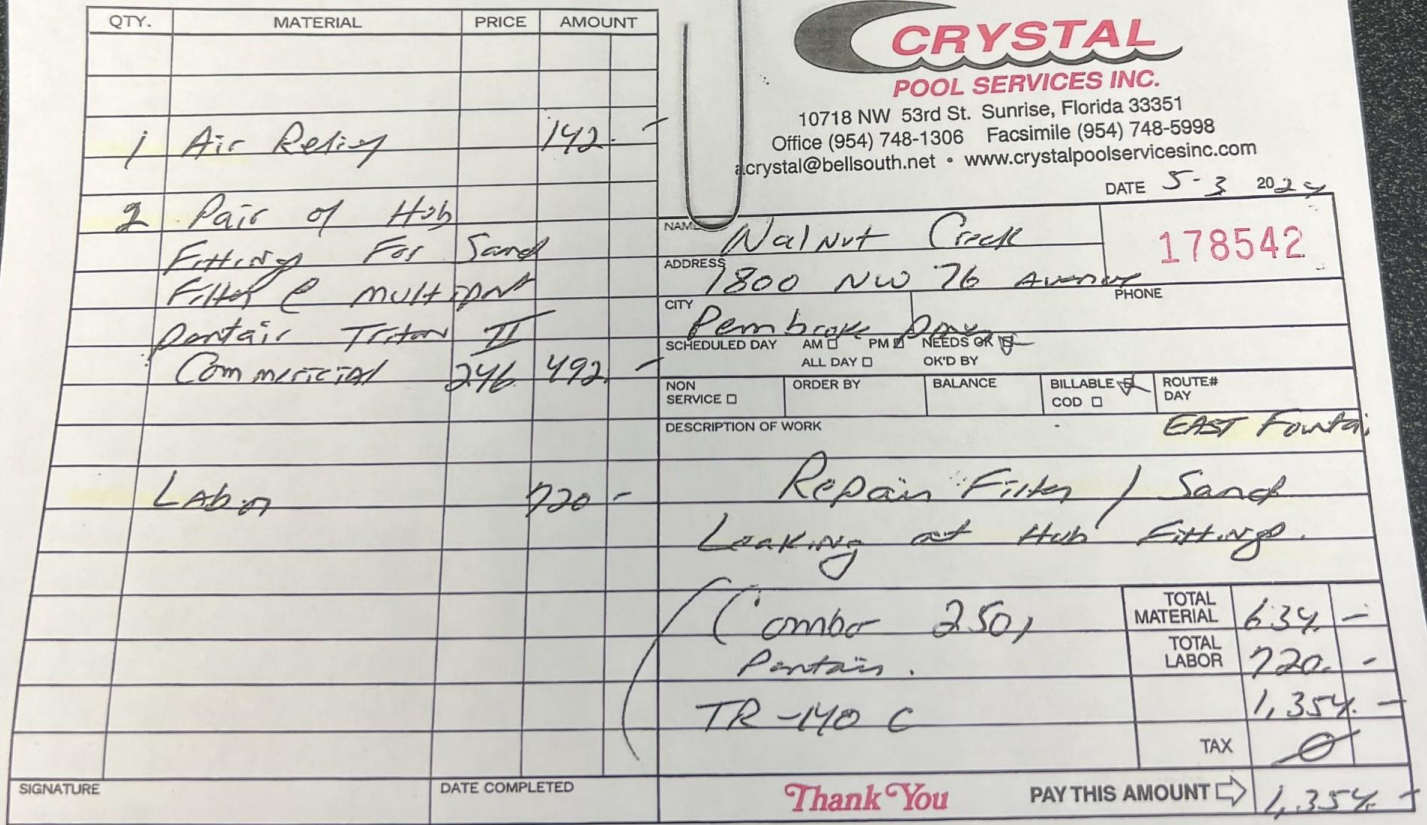 QTY. MATERIAL PRICE AMOUNT
1 Air Relief 142. -
2 Pair of Hub
Fitting For Sand
Filter @ multiport
Pentair Triton II
Commericial 246. 492. -
Labor 720 -
SIGNATURE DATE COMPLETED
CRYSTAL
POOL SERVICES INC.
10718 NW 53rd St. Sunrise, Florida 33351
Office (954) 748-1306 Facsimile (954) 748-5998
a.crystal@bellsouth.net • www.crystalpoolservicesinc.com
DATE 5-3 2024
NAME Walnut Creek
178542
ADDRESS 1800 NW 76 Avenue
CITY Pembroke PHONE
SCHEDULED DAY AM PM NEEDS OK
ALL DAY OK'D BY
NON SERVICE ORDER BY BALANCE BILLABLE COD ROUTE# DAY
DESCRIPTION OF WORK EAST Fountai
Repair Filter / Sand
Leaking at Hub Fittings.
Combo 250,
Pentair.
TR-140 C
TOTAL MATERIAL 634. -
TOTAL LABOR 720. -
1,354. -
TAX 0
Thank You PAY THIS AMOUNT 1,354. -